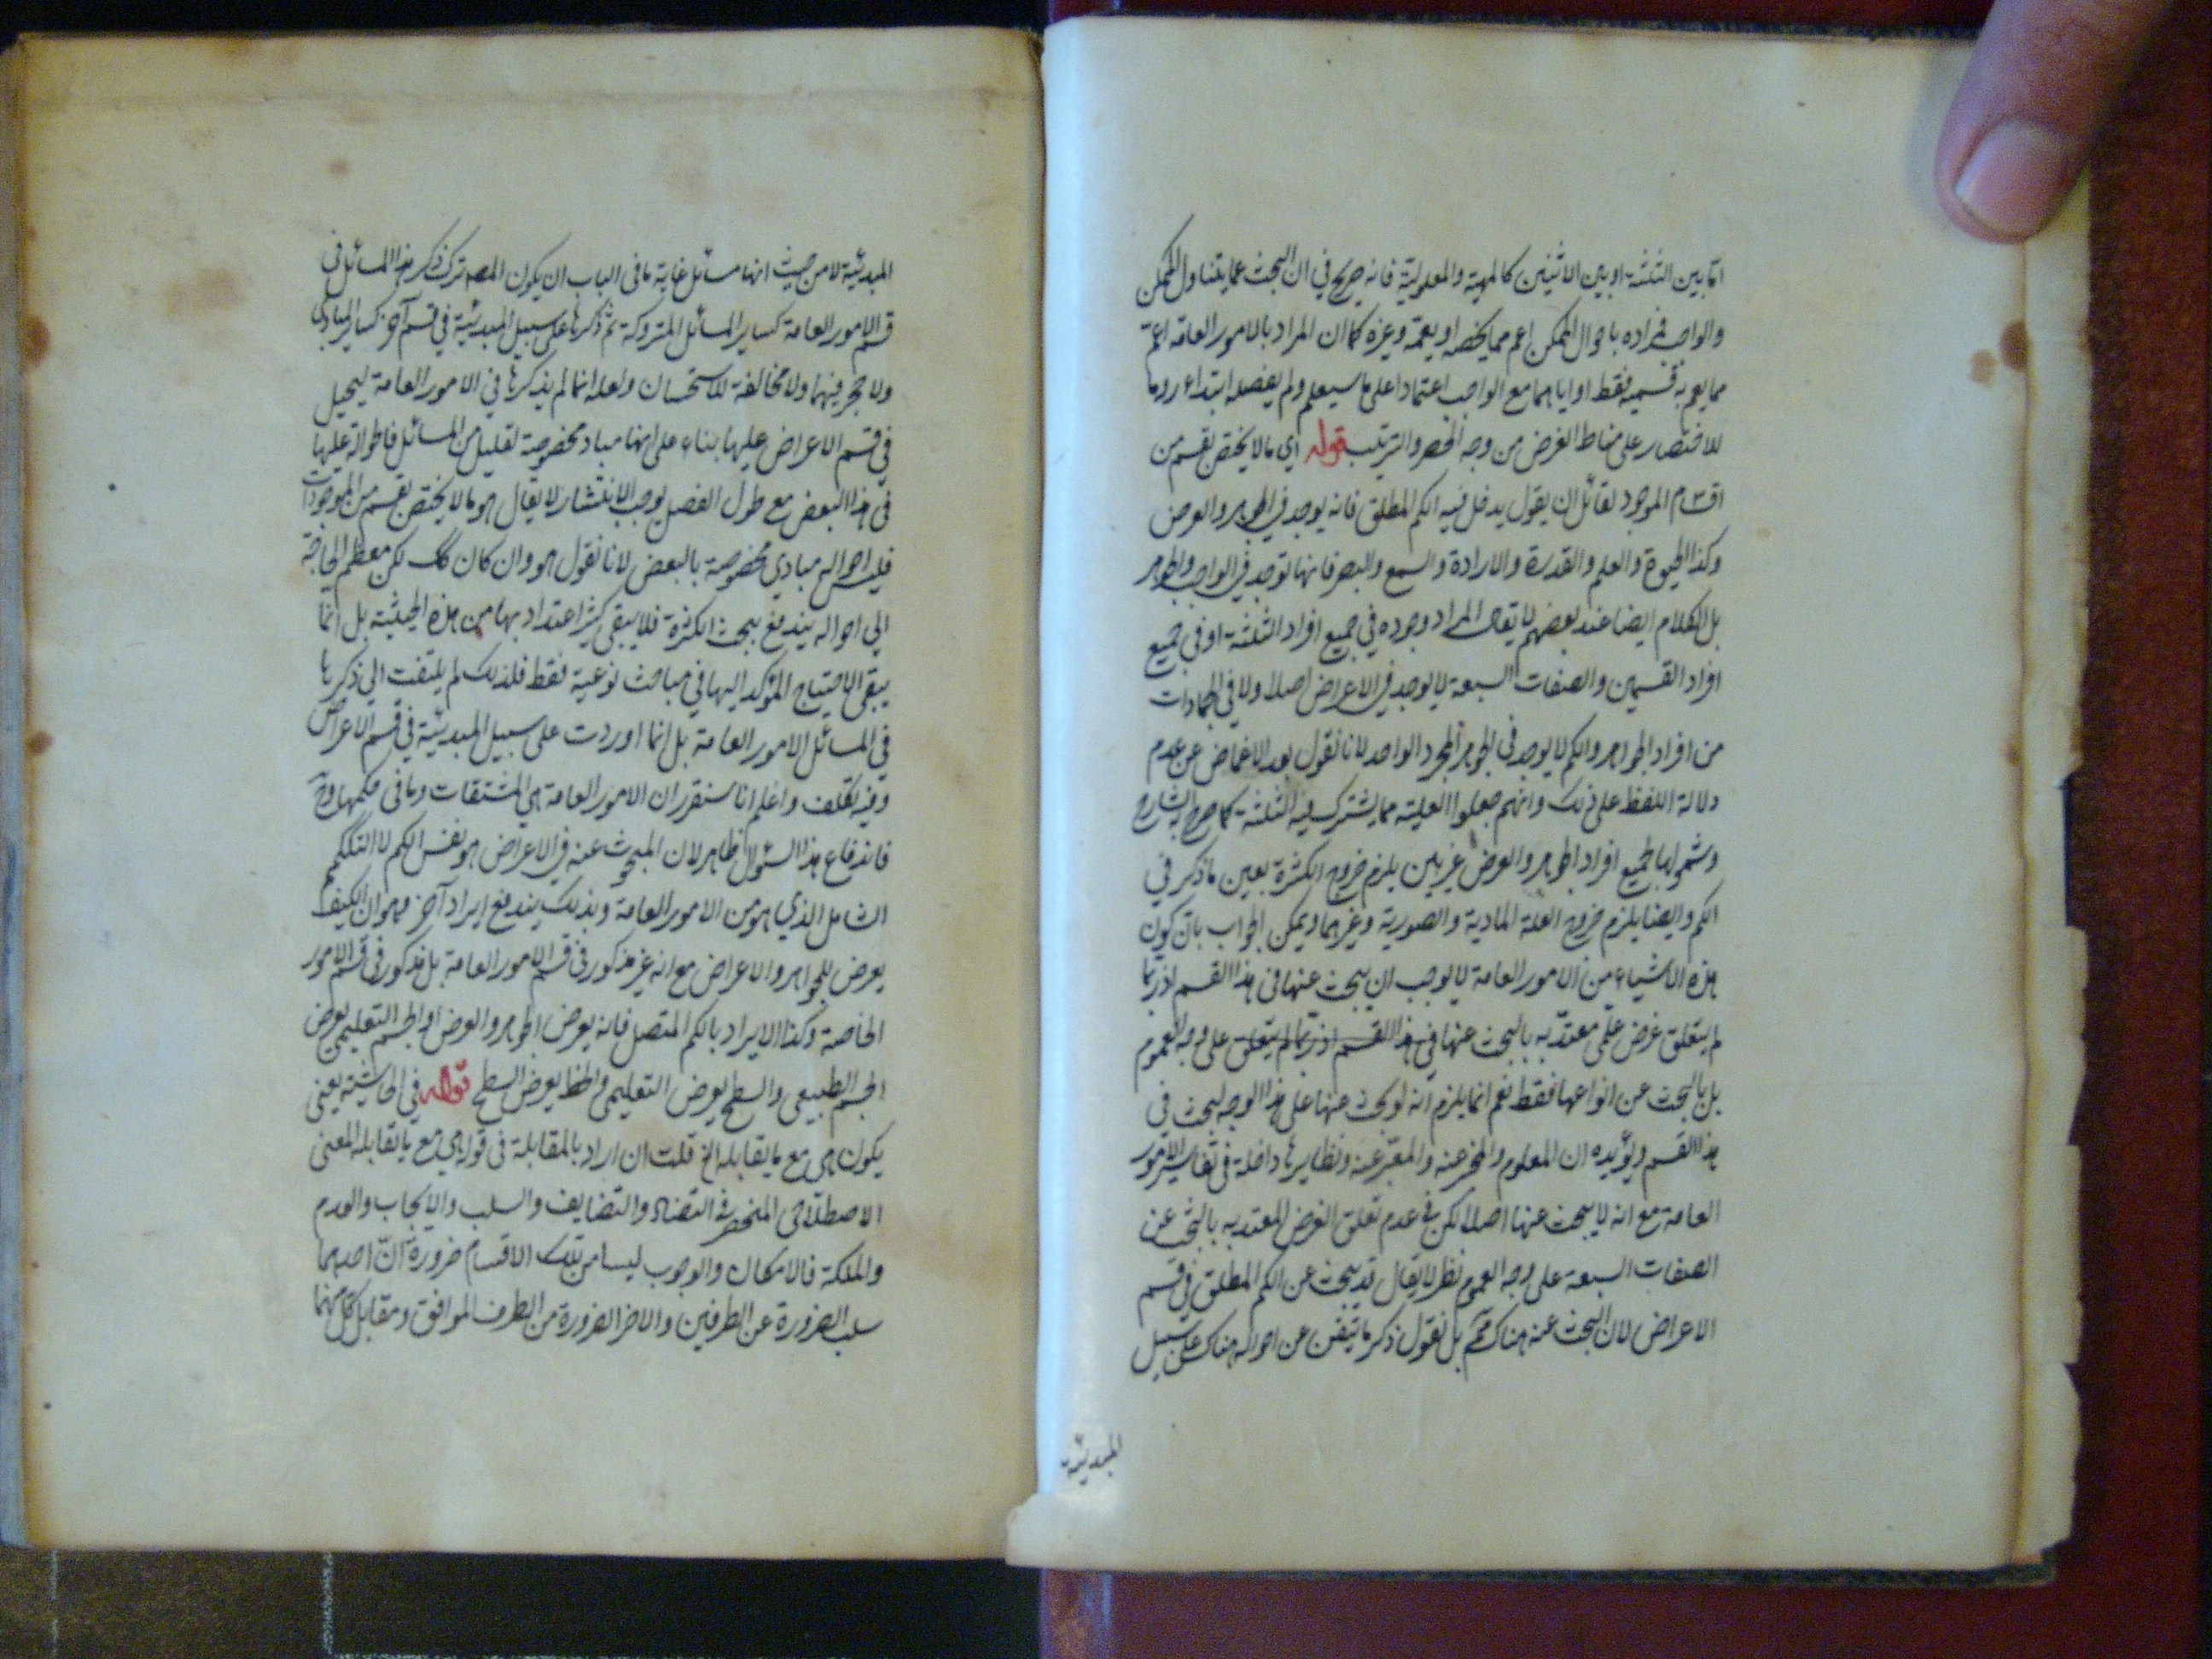 اما بين الثلثة او بين الاثنين كالمهية والمعلولية فانه صريح في ان البحث عما يتناول الممكن
والواجب فمراده باحوال الممكن اعم مما يخصه او يعمه وغيره كما ان المراد بالامور العامة اعم
مما يعم به قسميه فقط او اياهما مع الواجب اعتمادا على ما سيعلم ولم يفصله ابتداء روما
للاختصار على مناط الغرض من وجه الحصر والترتيب قوله اي ما لا يختص بقسم من
اقسام الموجود لقائل ان يقول يدخل فيه الكم المطلق فانه يوجد في الجوهر والعرض
وكذا الحيوة والعلم والقدرة والارادة والسمع والبصر فانها توجد في الواجب والجوهر
بل الكلام ايضا عند بعضهم لا يقال المراد وجوده في جميع افراد الثلثة او في جميع
افراد القسمين والصفات السبعة لا يوجد في الاعراض اصلا ولا في الجمادات
من افراد الجواهر والكم لا يوجد في الجوهر المجرد الواحد لانا نقول بعد الاغماض عن عدم
دلالة اللفظ على ذلك وانهم جعلوا العلية مما يشترك فيه الثلثة كما صرح به الشارح
وشمولها لجميع افراد الجوهر والعرض غير بين يلزم خروج الكثرة بعين ما ذكر في
الكم وايضا يلزم خروج العلة المادية والصورية وغيرهما ويمكن الجواب بان كون
هذه الاشياء من الامور العامة لا يوجب ان يبحث عنها في هذا القسم اذ ربما
لم يتعلق غرض علمي معتد به بالبحث عنها في هذا القسم اذ ربما لم يتعلق على وجه العموم
بل بالبحث عن انواعها فقط نعم انما يلزم انه لو بحث عنها على هذا الوجه لبحث في
هذا القسم ويؤيده ان المعلوم والمخبر عنه والمعبر عنه ونظايرها داخلة في تفاسير الامور
العامة مع انه لا يبحث عنها اصلا لكن في عدم تعلق الغرض المعتد به بالبحث عن
الصفات السبعة على وجه العموم نظر لا يقال قد يبحث عن الكم المطلق في قسم
الاعراض لان البحث عنه هناك بل نقول ذكر ما عن احواله هناك على سبيل
المبدئية
المبدئية لا من حيث انها مسائل غاية ما في الباب ان يكون المصـ ترك ذكر هذا المسائل في
قسم الامور العامة كساير المسائل المتروكة ثم ذكرها على سبيل المبدئية في قسم آخر كساير المبادي
ولا حجر فيهما ولا مخالفة للاستحسان ولعله انما لم يذكرها في الامور العامة ليحيل
في قسم الاعراض عليها بناء على انها مباد مخصوصة لقليل من المسائل فاحوالة عليها
في هذا البعض مع طول الفصل يوجب الانتشار لا يقال هو ما لا يختص بقسم من الموجودات
فليس احواله مبادي مخصوصة بالبعض لانا نقول هو وان كان كك لكن معظم الحاجة
الي احواله يندفع ببحث الكثرة فلا يبقى كثير اعتداد بها من هذه الحيثية بل انما
يبقى الاحتياج المؤكد اليها في مباحث نوعية فقط فلذلك لم يلتفت الي ذكرها
في المسائل الامور العامة بل انما اوردت على سبيل المبدئية في قسم الاعراض
وفيه تكلف واعلم انا سنقرر ان الامور العامة هي المشتقات وما في حكمها وح
فاندفاع هذا السؤال ظاهر لان المبحوث عنه في الاعراض هو نفس الكم لا التكمم
الشامل الذي هو من الامور العامة وبذلك يندفع ايراد آخر وهو ان الكيف
يعرض للجواهر والاعراض مع انه غير مذكور في قسم الامور العامة بل مذكور في قسم الامور
الخاصة وكذا الايراد بالكم المتصل فانه يعرض الجوهر والعرض اذ الجسم التعليمي يعرض
الجسم الطبيعي والسطح يعرض التعليمي والخط يعرض السطح قوله في الحاشية يعني
يكون هي مع ما يقابله الخ قلت ان اراد بالمقابلة في قوله هي مع ما يقابله المعنى
الاصطلاحي المنحصر في التضاد والتضايف والسلب والايجاب والعدم
والملكة فالامكان والوجوب ليسا من تلك الاقسام ضرورة ان احدهما
سلب الضرورة عن الطرفين والاخر الضرورة من الطرف الموافق ومقابل كل منهما